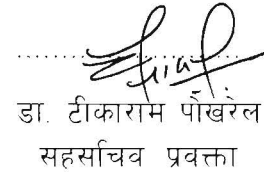 डा. टीकाराम पोखरेल
सहसचिव प्रवक्ता